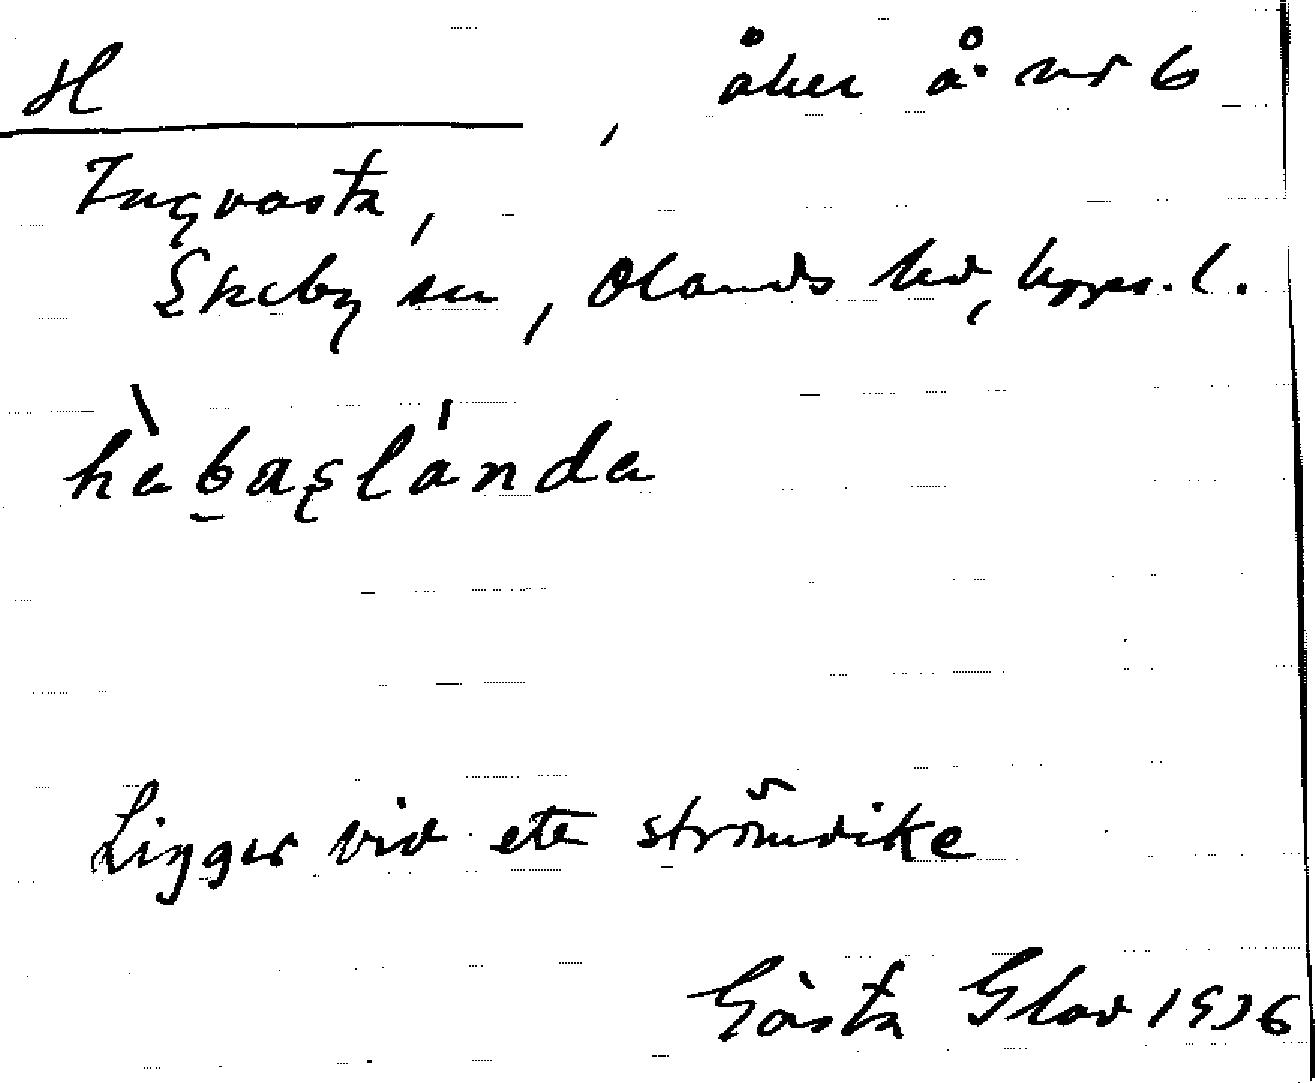 H
, åker å. nr 6
Ingvasta,
Ekeby sn, Olands hd, Upps. l.
hàbaslánda
Ligger vid ett strömdike
Gösta Glad 1936